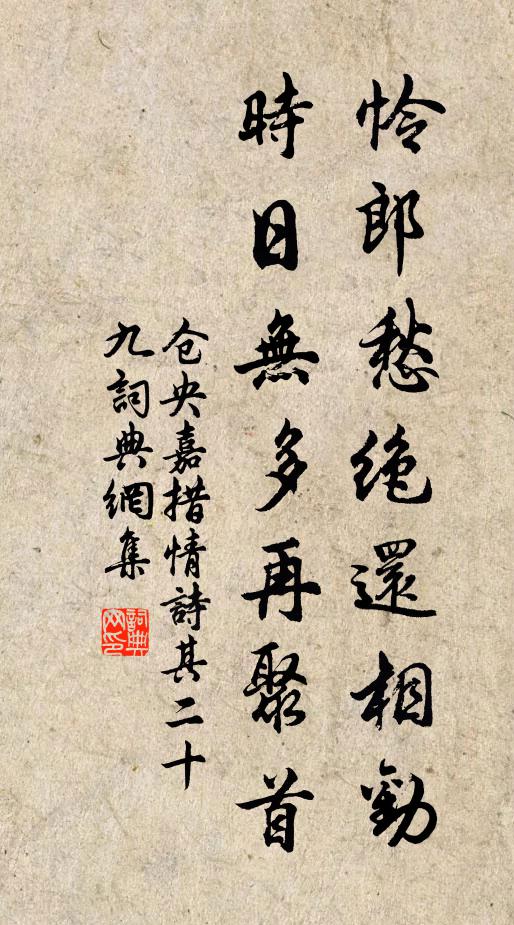 怜郎愁绝還相勸
時日無多再聚首
仓央嘉措情詩其二十
九詞典網集
詞典
网印